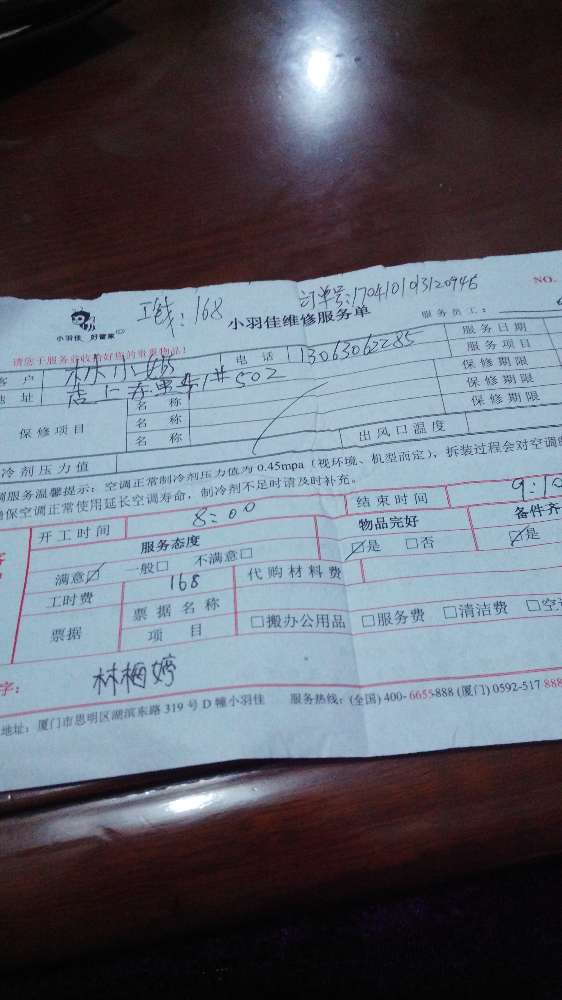 订单号:170410103120946
工钱:168
小羽佳 好管家
小羽佳维修服务单
NO.
服务员工:
请您于服务前收拾好您的贵重物品!
客 户 林小姐 电 话 13063062285 服务日期
地 址 1#502 服务项目
保修项目
名 称 保修期限
名 称 保修期限
名 称 保修期限
冷剂压力值 出风口温度
调服务温馨提示:空调正常制冷剂压力值为 0.45mpa(视环境、机型而定),拆装过程会对空调
确保空调正常使用延长空调寿命,制冷剂不足时请及时补充。
开工时间 8:00 结束时间 9:10
服务态度 物品完好 备件齐
满意☑ 一般□ 不满意□ ☑是 □否 ☑是
工时费 168 代购材料费
票据 票据名称
项 目 □搬办公用品 □服务费 □清洁费 □空
字: 林梅婷
地址:厦门市思明区湖滨东路 319 号 D 幢小羽佳 服务热线:(全国) 400-6655-888 (厦门) 0592-517 888